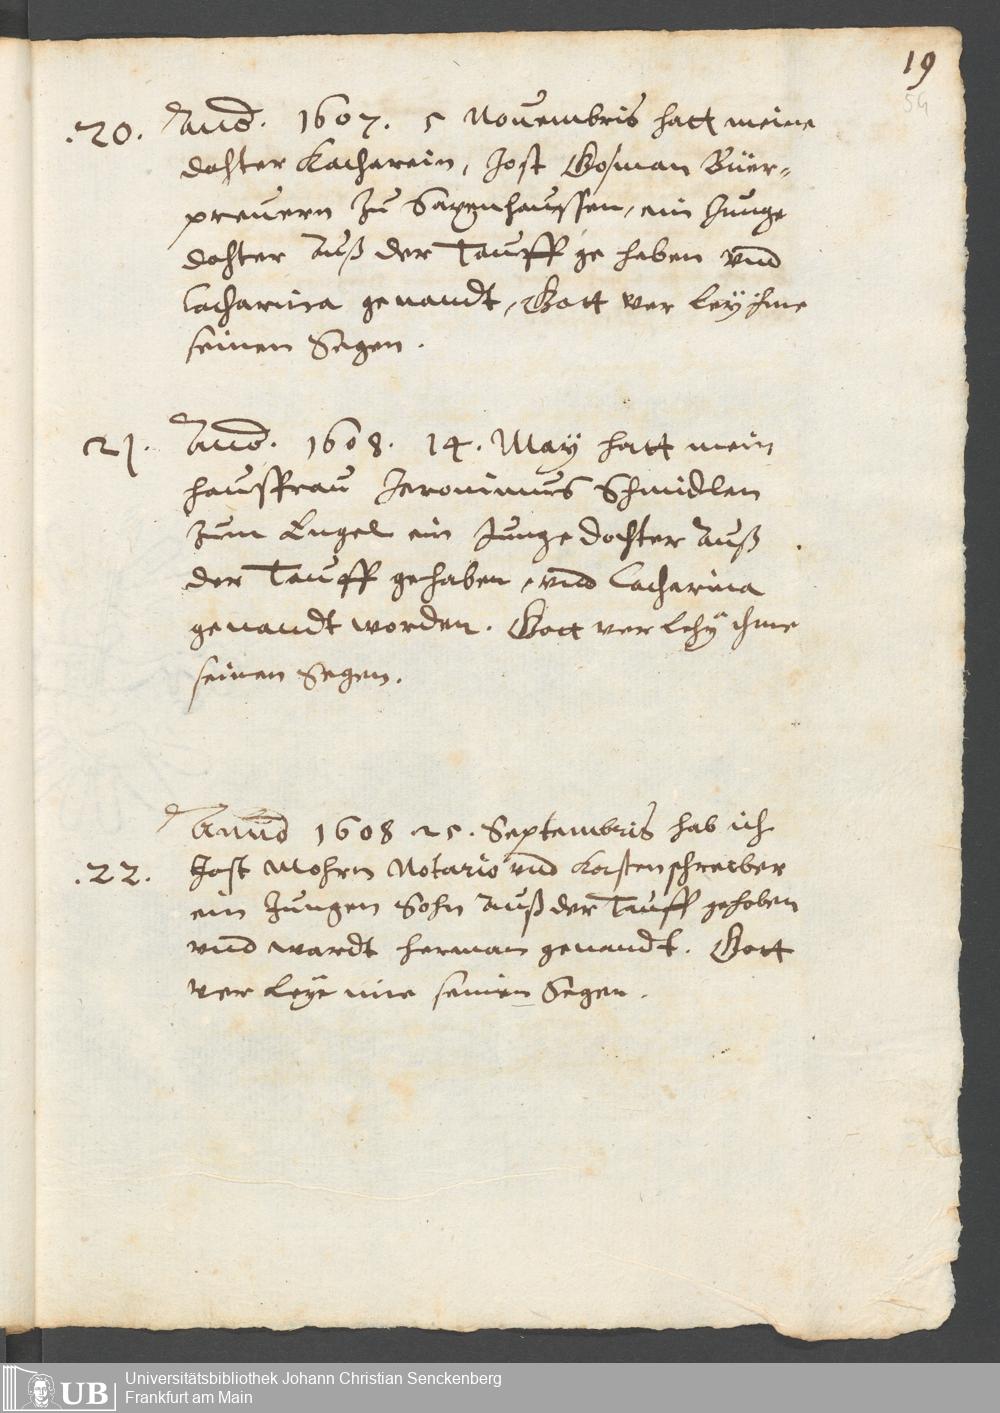 19
54
.20. Anno. 1607. 5 Nouembris hatt meine
dohter Katharein, Jost Gosman Büer-
preuern Zu Saxenhaussen, ein Junge
dohter Auß der Tauff ge haben vnd
Catharina genandt, Gott ver leÿ ihme
seinen Segen.
21. Anno. 1608. 14. Maÿ hatt mein
hausffrau Jeronimus Schmidlen
Zum Engel ein Junge dohter Auß
der Tauff gehaben, vnd Catharina
genandt worden. Gott ver lehÿ ihme
seinen Segen.
Anno 1608 25. Septembris hab ich
.22. Jost Mohrn Notario vnd Kastenschreiber
ein Jungen Sohn Auß der Tauff gehoben
vnd wardt herman genandt. Gott
ver leÿe ime seinen Segen.
UB
Universitätsbibliothek Johann Christian Senckenberg
Frankfurt am Main